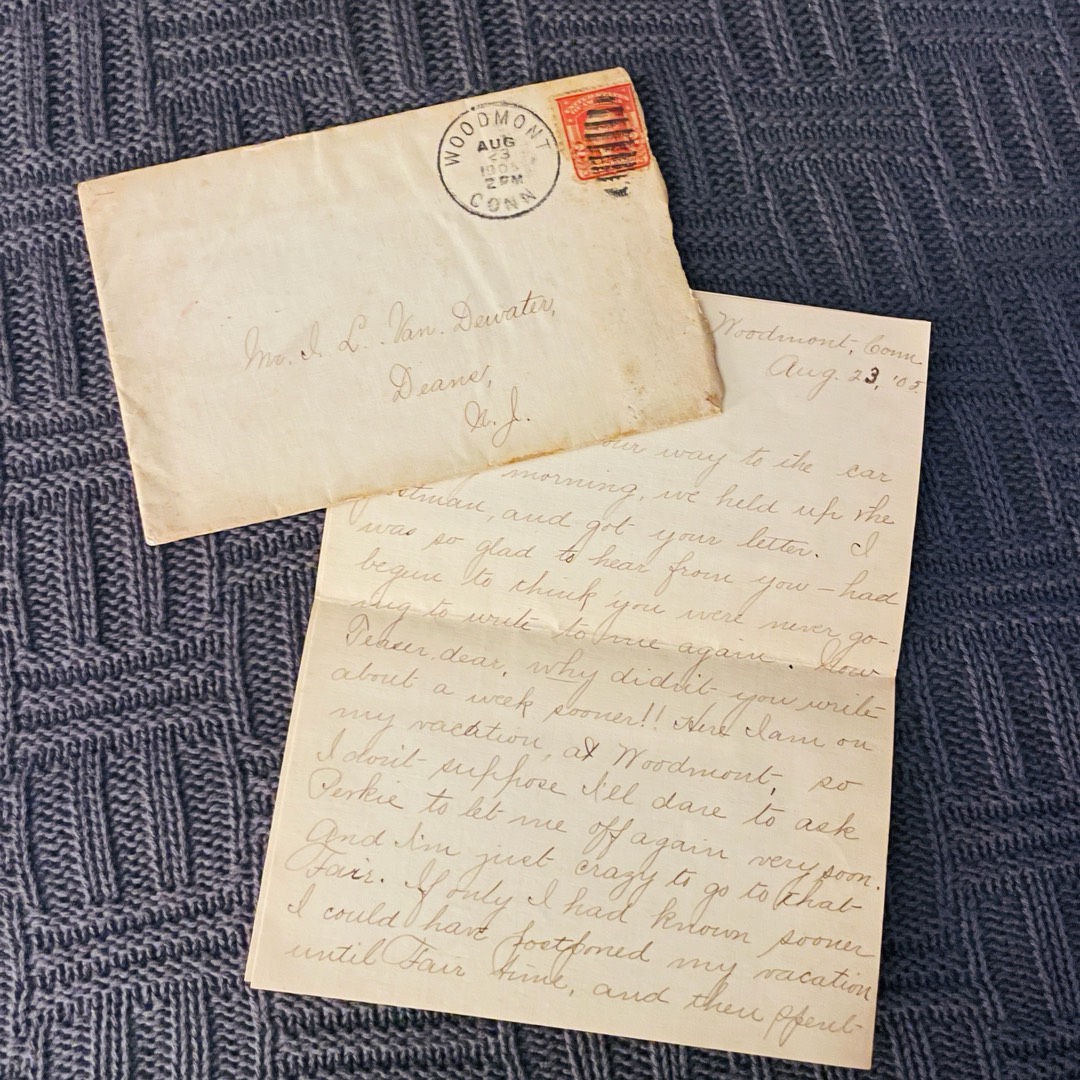 WOODMONT
AUG
23
2 PM
CONN
Mr. I. L. Van. Dewater,
Deans,
N. J.
Woodmont, Conn
Aug. 23, '05.
our way to the car
morning, we held up the
stman, and got your letter. I
was so glad to hear from you – had
begun to think you were never go-
ing to write to me again. Now
Teaser dear, why didn't you write
about a week sooner!! Here I am on
my vacation, at Woodmont, so
I don't suppose I'll dare to ask
Perkie to let me off again very soon.
And I'm just crazy to go to that
Fair. If only I had known sooner
I could have postponed my vacation
until Fair time, and then spent